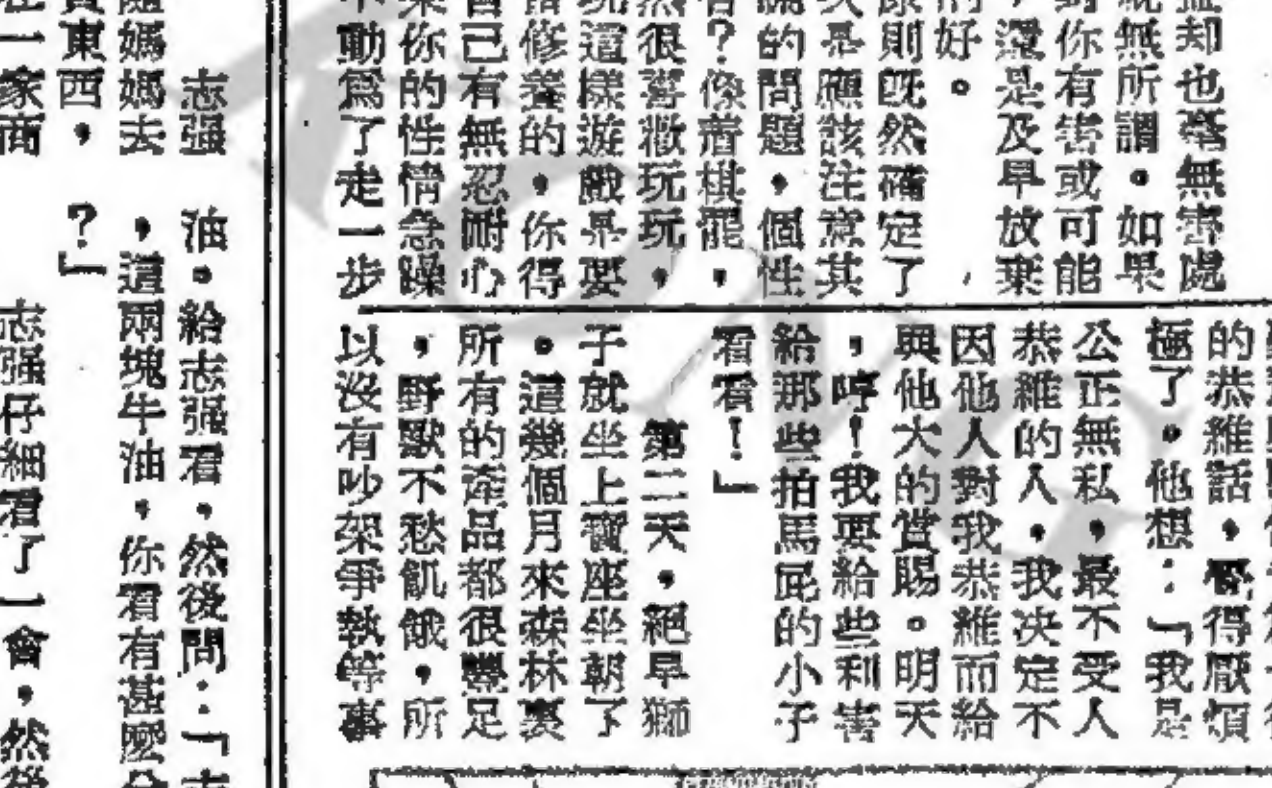 却也毫無害處
無所謂。如果
對你有害或可能
,還是及早放棄
的好。
則既然確定了
是應該注意其
的問題,個性
?像着棋罷,
然很喜歡玩玩,
這樣遊戲是要
修養的,你得
自己有無忍耐心
果你的性情急躁
不動爲了走一步
的恭維話,覺得厭煩
極了。他想:「我是
公正無私,最不受人
恭維的人,我决定不
因他人對我恭維而給
與他大的賞賜。明天
,哼!我要給些利害
給那些拍馬屁的小子
看看!」
第二天,絕早獅
子就坐上寶座坐朝了
。這幾個月來森林裏
所有的產品都很豐足
,野獸不愁飢餓,所
以沒有吵架爭執等事
志强
隨媽媽去
買東西,
在一家商
油。給志强看,然後問:「志
,這兩塊牛油,你看有甚麼分
?」
志强仔細看了一會,然後